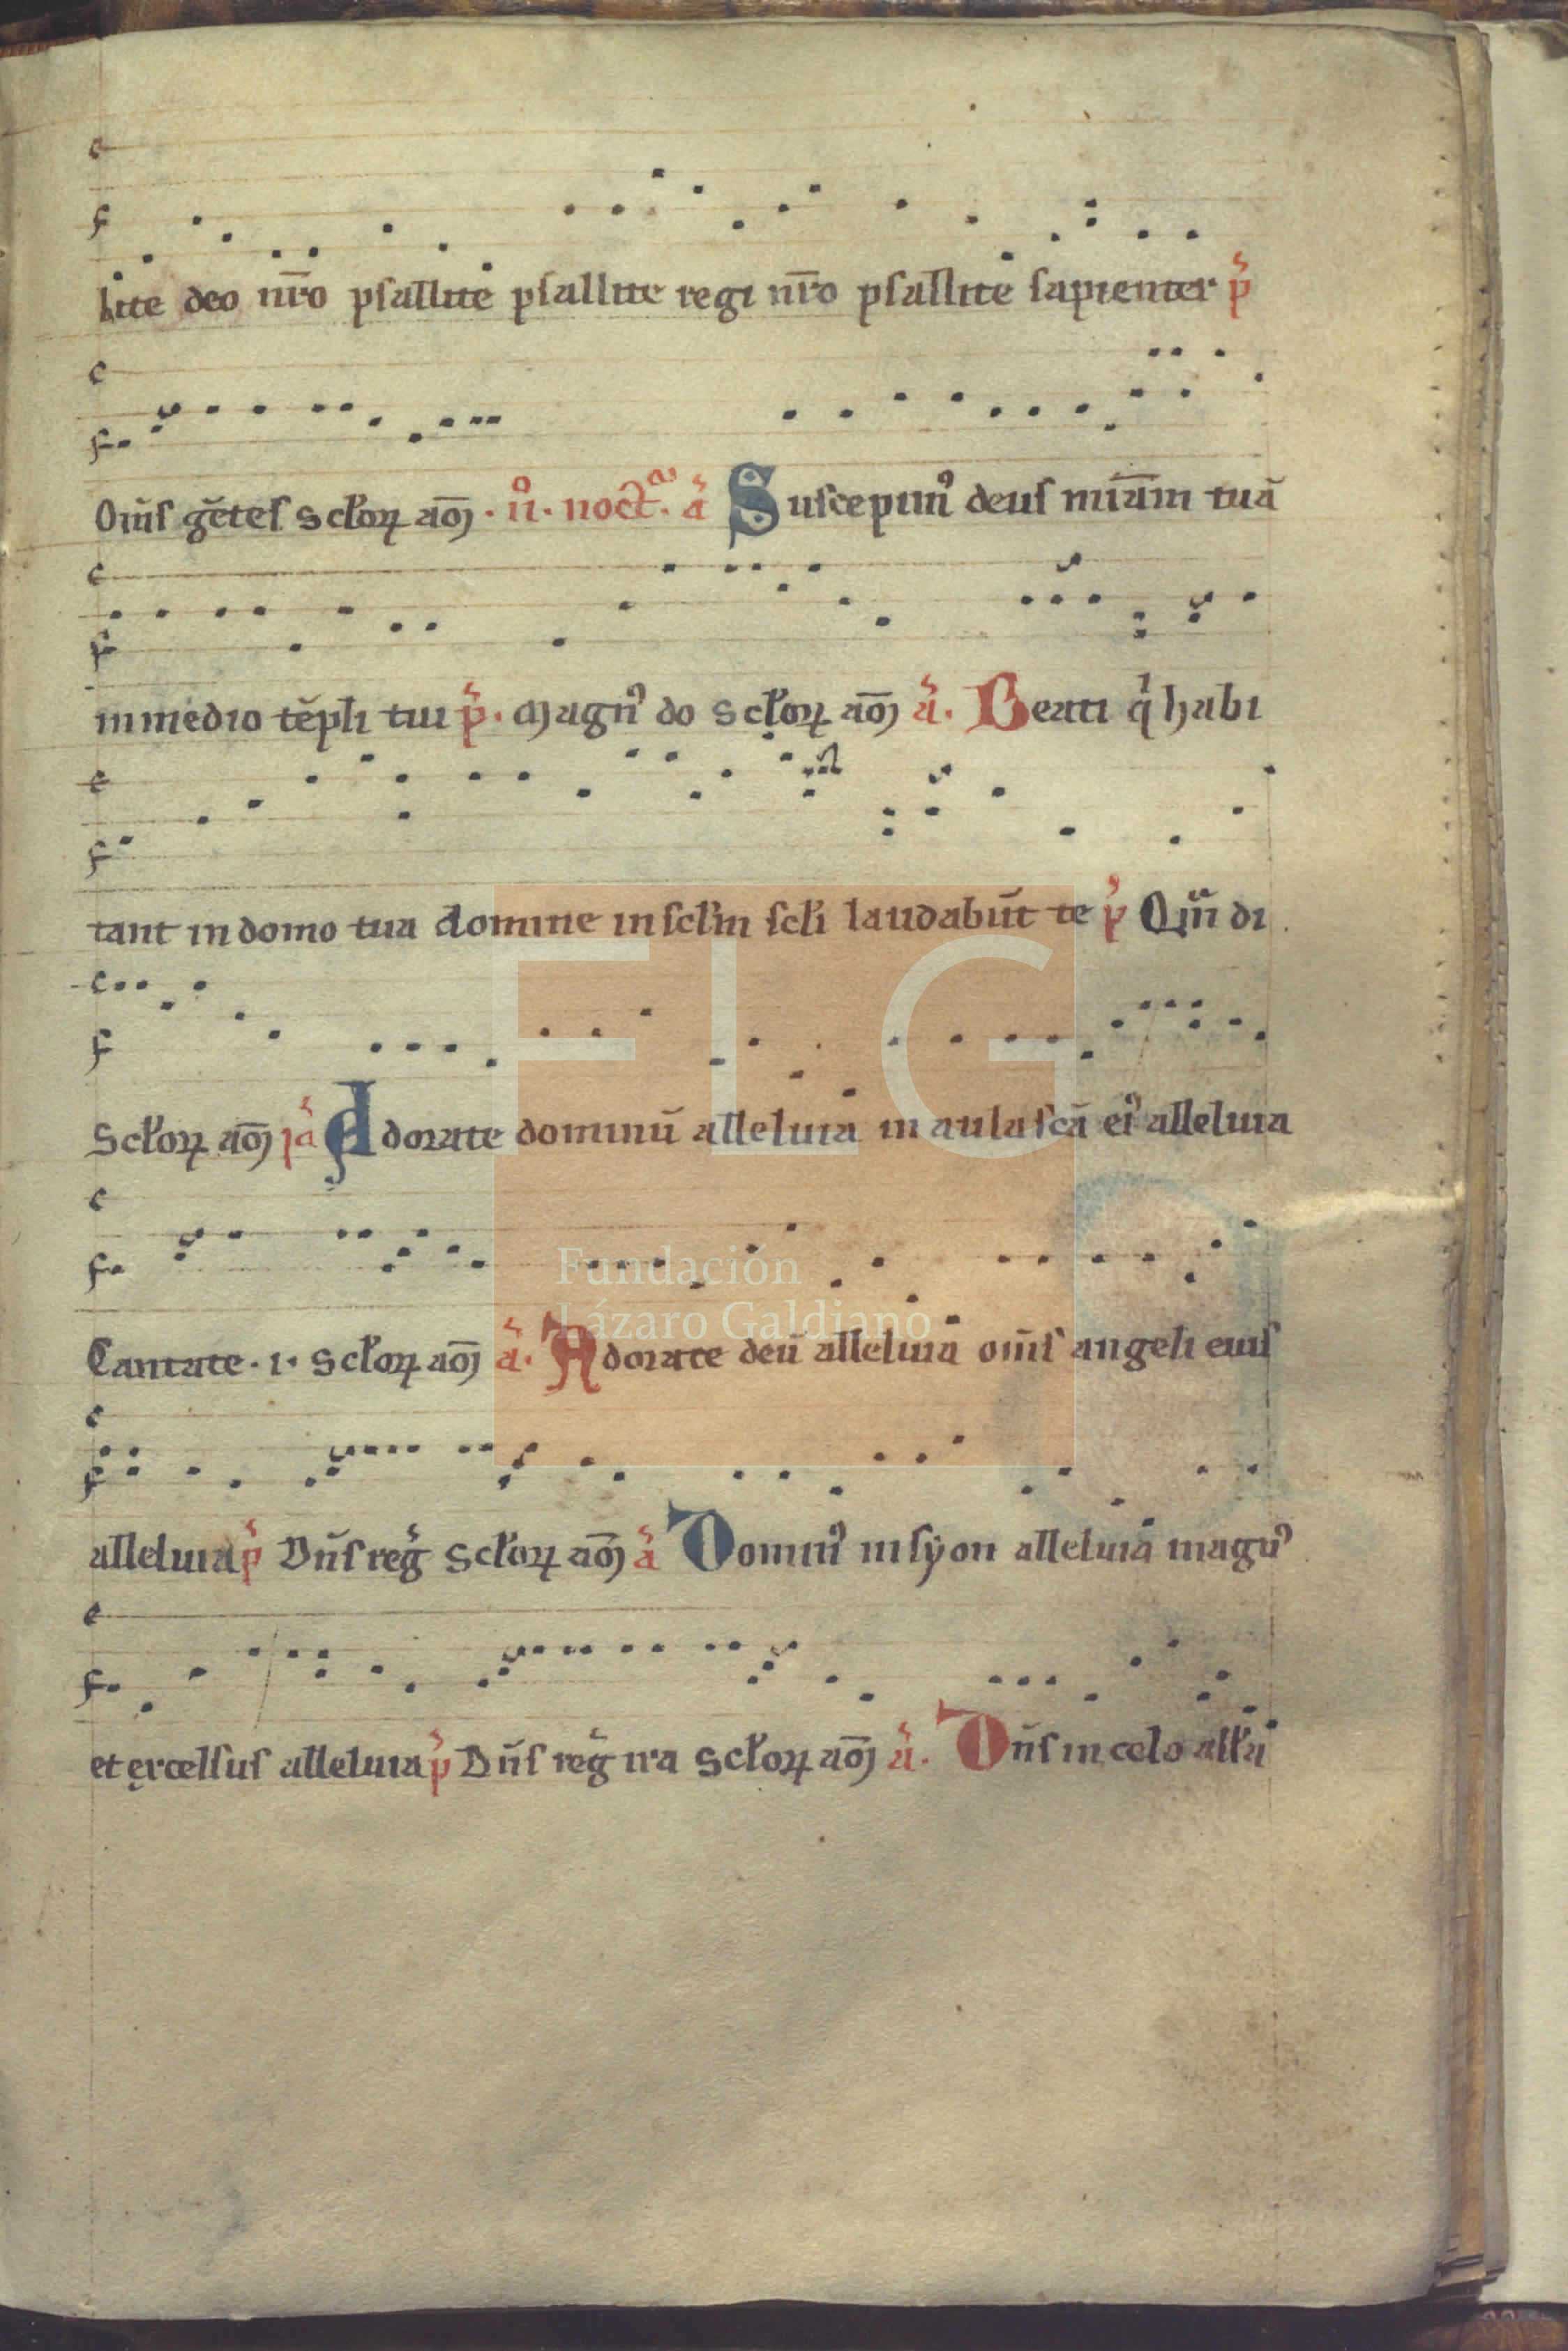 lite deo nr̄o psallite psallite regi nr̄o psallite sapienter p̄
Om̄s gētes scl'oꝝ am̄ · ii · noct̄ · ā Suscepimꝰ deus mīam tuā
in medio tēpli tui p̄ · Magnꝰ do scl'oꝝ am̄ ā · Beati q̇ habi
tant in domo tua domine in scl'm scl'i laudabūt te p̄ Qm̄ di
scl'oꝝ am̄ ıā Adorate dominū alleluia in aula scā eiꝰ alleluia
Cantate · i · scl'oꝝ am̄ ā · Adorate deū alleluia om̄s angeli eius
alleluia p̄ Dn̄s reḡ scl'oꝝ am̄ ā Dominꝰ in syon alleluia magnꝰ
et excelsus alleluia p̄ Dn̄s reḡ ira scl'oꝝ am̄ ā · Dn̄s in celo all'a
FLG
Fundación
Lázaro Galdiano